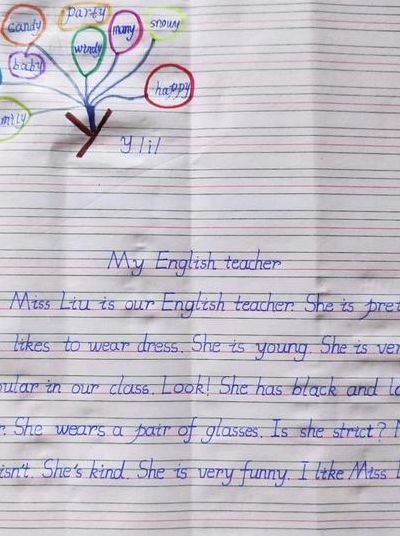 candy
party
windy
many
snowy
baby
happy
mily
y /i/
My English teacher
Miss Liu is our English teacher. She is pret
likes to wear dress. She is young. She is ver
pular in our class. Look! She has black and lo
r. She wears a pair of glasses. Is she strict? N
isn't. She's kind. She is very funny. I like Miss L